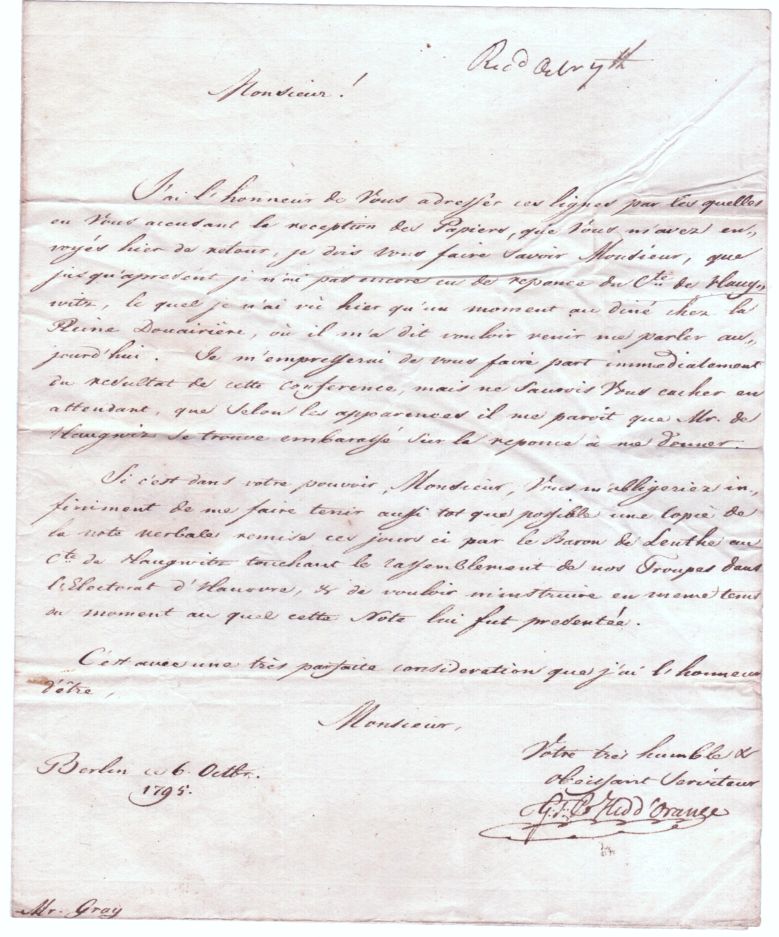 Recd Octbr 7th
Monsieur!
J'ai l'honneur de Vous adresser ces lignes par les quelles
en Vous accusant la reception des Papiers, que Vous m'avez en„
voyés hier de retour, je dois vous faire savoir Monsieur, que
jusqu'apresent je n'ai pas encore eu de reponce du Cte de Haug„
witz, le quel je n'ai vû hier qu'un moment au diné chez la
Reine Douairière, où il m'a dit vouloir venir me parler au„
jourd'hui. Je m'empresserai de vous faire part immediatement
du resultat de cette Conference, mais ne saurois Vous cacher en
attendant, que selon les apparences il me paroît que Mr. de
Haugwiz se trouve embarassé sur la reponce à me donner.
Si c'est dans votre pouvoir, Monsieur, Vous m'abligeriez in„
finiment de me faire tenir aussi tot que possible une Copie de
la note verbale remise ces jours ci par le Baron de Lenthe au
Cte de Haugwitz touchant le rassemblement de nos Troupes dans
l'Electorat d'Hanovre, & de vouloir m'instruire en meme tems
du moment au quel cette Note lui fut presentée.
C'est avec une très parfaite consideration que j'ai l'honneur
d'être,
Monsieur,
Votre très humble &
obeissant Serviteur
G. F. Pr. Hed d'Orange
Berlin ce 6. Octbr.
1795.
Mr. Gray